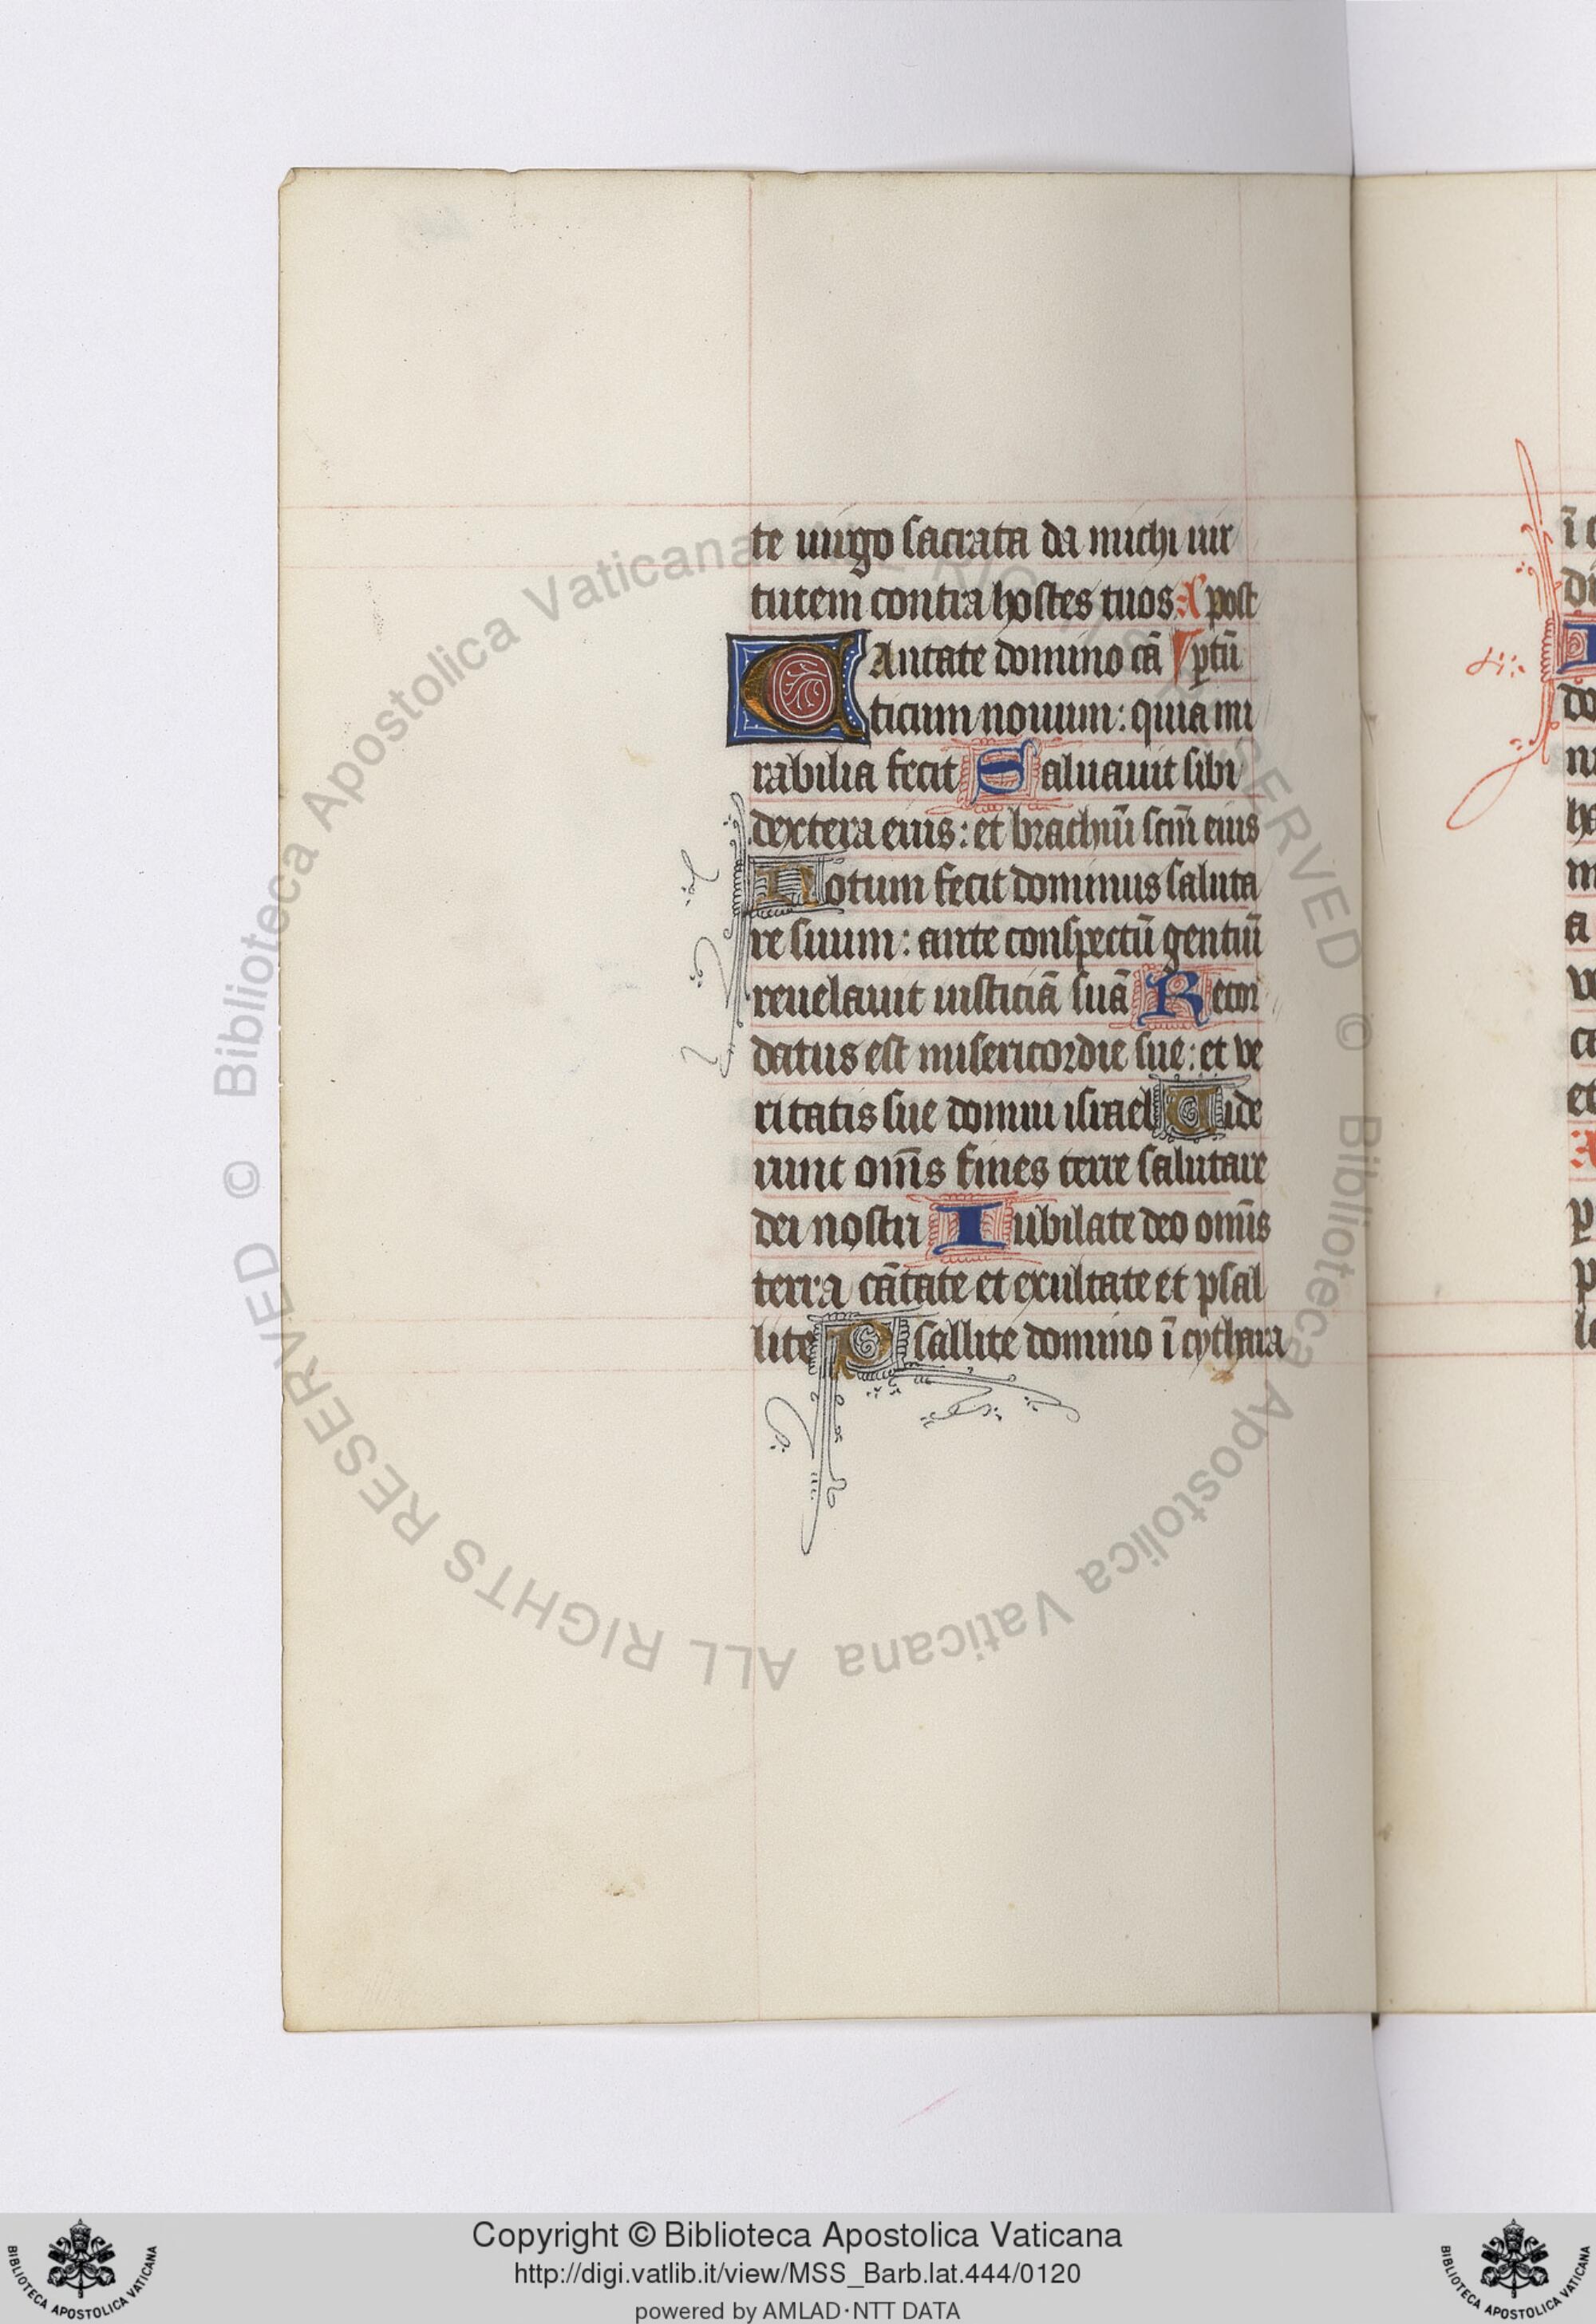 te uirgo sacrata da michi uir
tutem contra hostes tuos. A' post
CAntate domino cā ps ptū
ticum nouum: quia mi
rabilia fecit Saluauit sibi
dextera eius: et brachiū scm̄ eius
Notum fecit dominus saluta
re suum: ante conspectū gentiū
reuelauit iusticiā suā Recor
datus est misericordie sue: et ve
ritatis sue domui israel Uide
runt om̄s fines terre salutare
dei nostri Iubilate deo om̄is
terra cātate et exultate et psal
lite Psallite domino ī cythara
Copyright © Biblioteca Apostolica Vaticana
http://digi.vatlib.it/view/MSS_Barb.lat.444/0120
powered by AMLAD·NTT DATA
BIBLIOTECA APOSTOLICA VATICANA
BIBLIOTECA APOSTOLICA VATICANA
© Biblioteca Apostolica Vaticana ALL RIGHTS RESERVED © Biblioteca Apostolica Vaticana ALL RIGHTS RESERVED